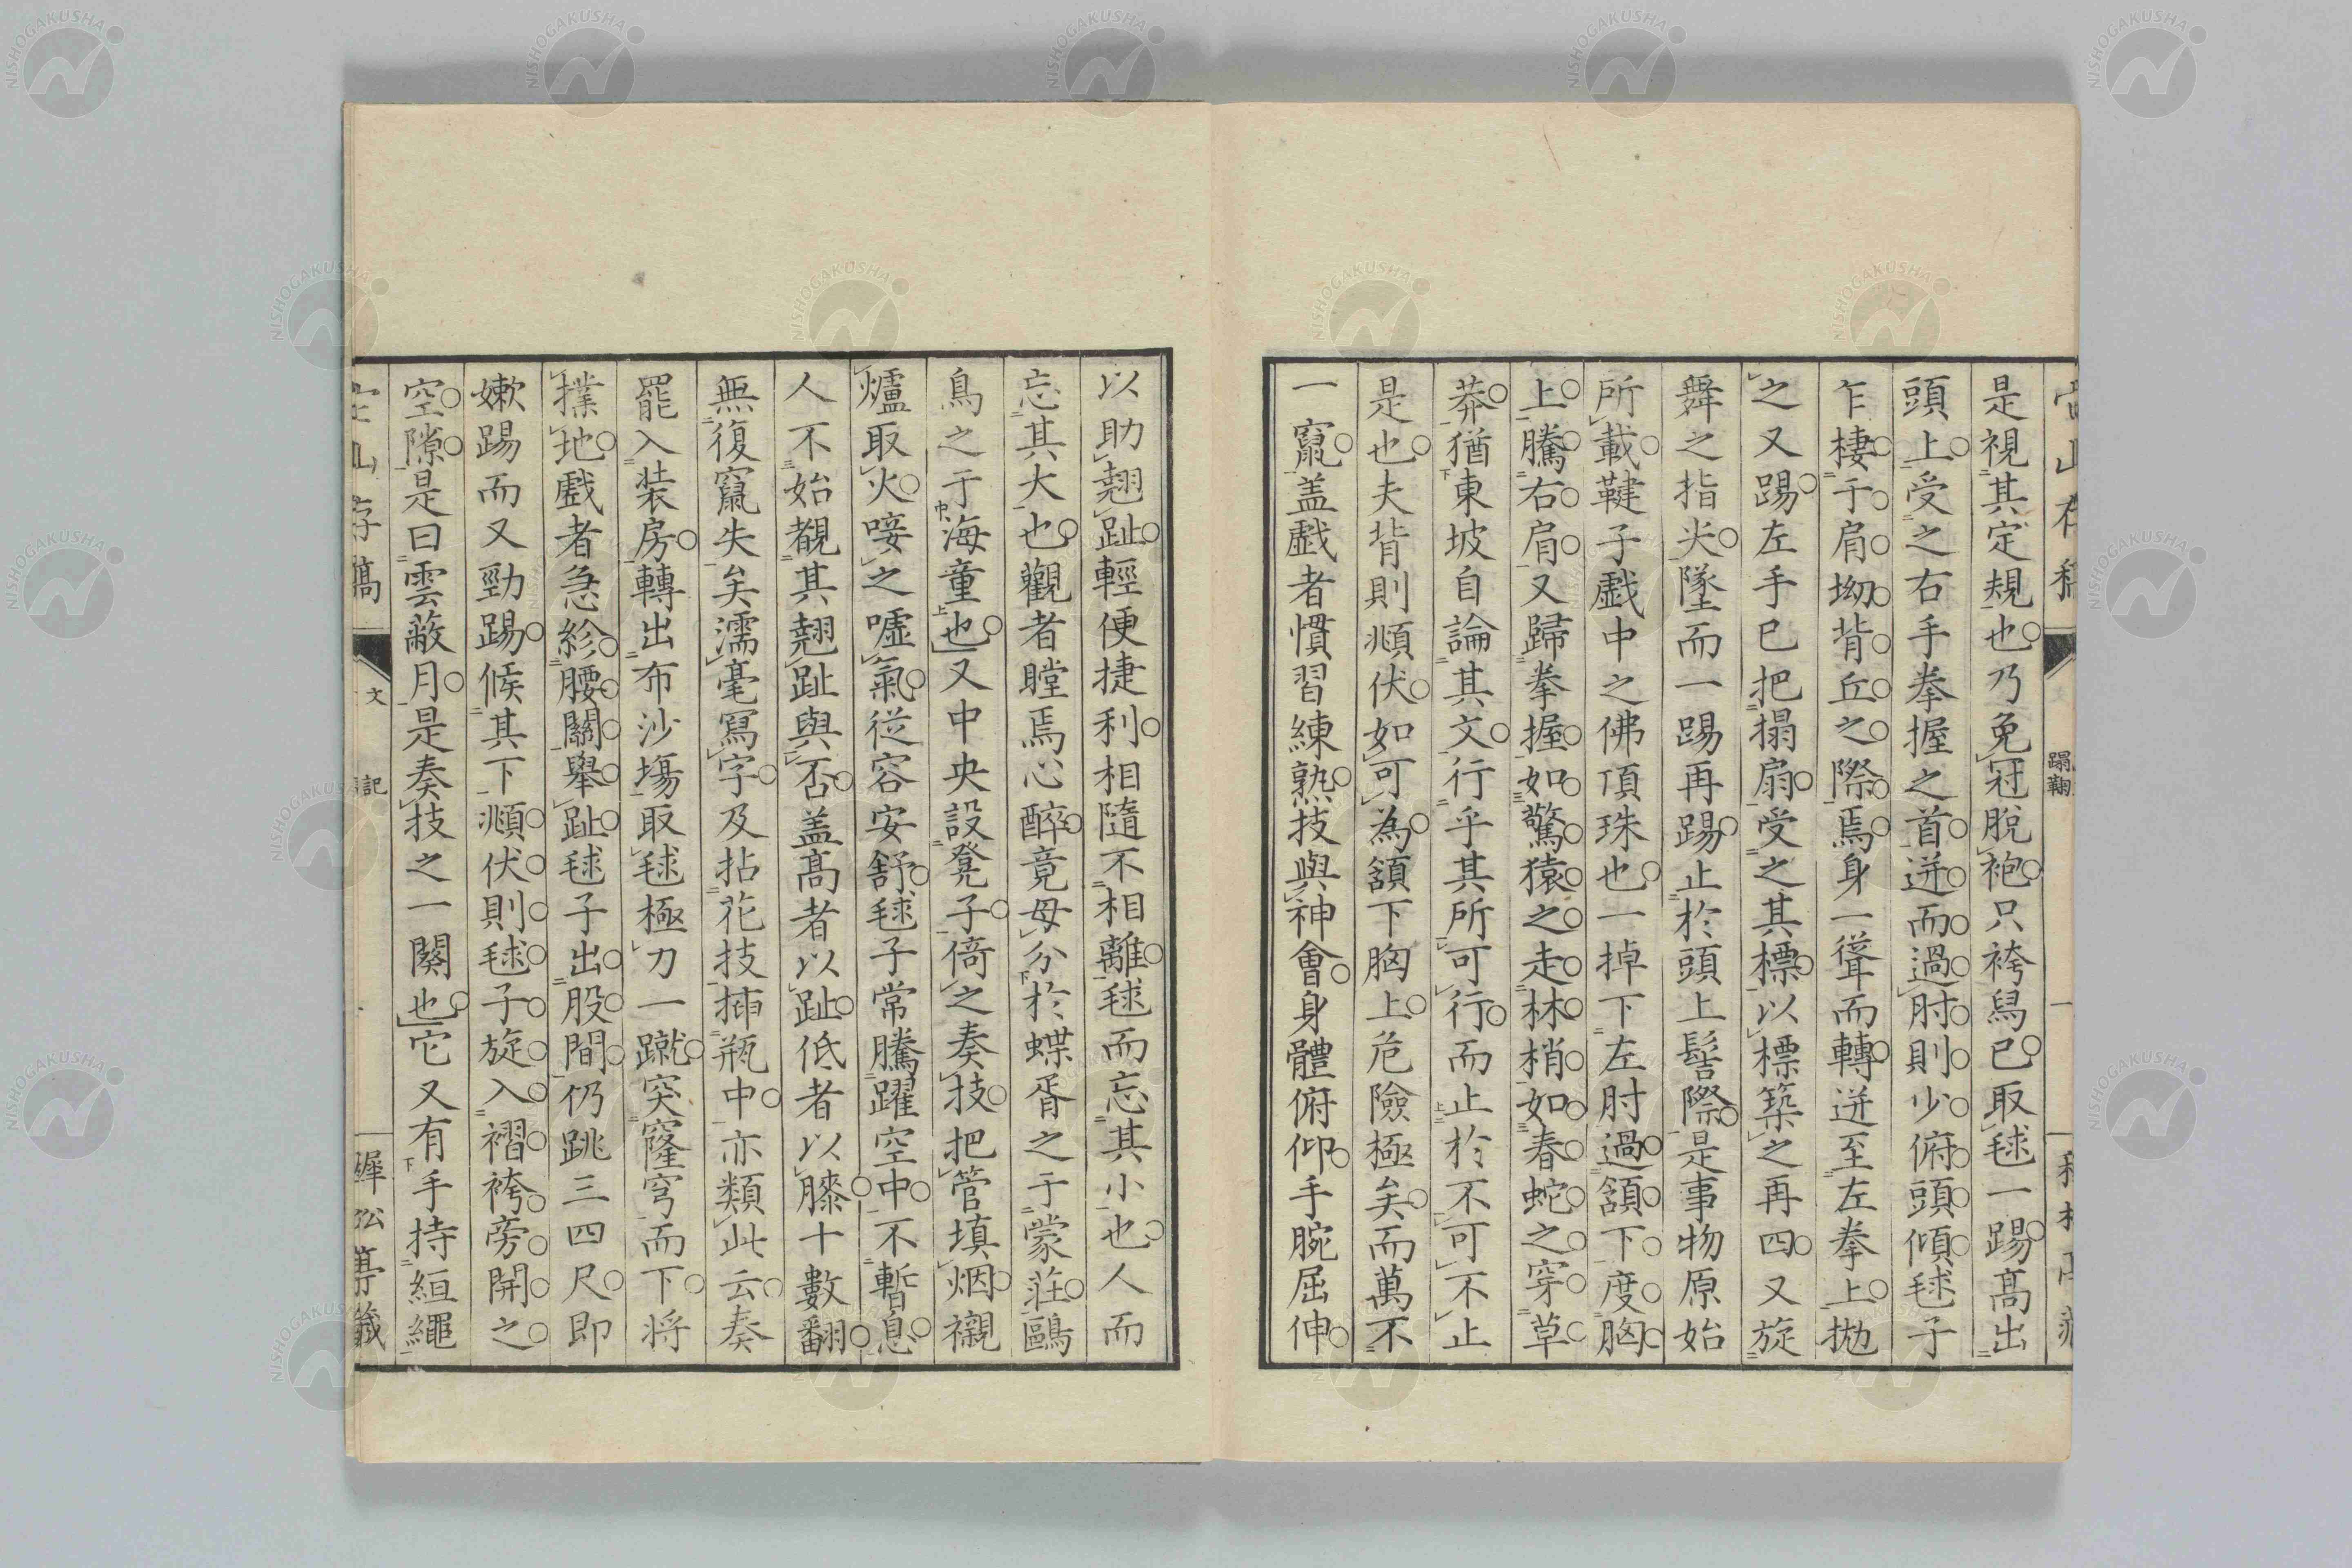 是視其定規也乃免冠脫袍只袴舃已取毬一踢高出
頭上受之右手拳握之首迸而過肘則少俯頭傾毬子
乍棲于肩坳背丘之際焉身一聳而轉迸至左拳上拋
之又踢左手已把搨扇受之其標以標築之再四又旋
舞之指尖墜而一踢再踢止於頭上髻際是事物原始
所載鞬子戲中之佛頂珠也一掉下左肘過頷下度胸
上騰右肩又歸拳握如驚猿之走林梢如春蛇之穿草
莽猶東坡自論其文行乎其所可行而止於不可不止
是也夫背則頫伏如可為頷下胸上危險極矣而萬不
一竄盖戲者慣習練熟技與神會身體俯仰手腕屈伸
以助翹趾輕便捷利相隨不相離毬而忘其小也人而
忘其大也觀者瞠焉心醉竟毋分於蝶胥之于蒙莊鷗
鳥之于海童也又中央設凳子倚之奏技把管填烟襯
爐取火唼之噓氣從容安舒毬子常騰躍空中不暫息
人不始覩其翹趾與否盖高者以趾低者以膝十數翻
無復竄失矣濡毫寫字及拈花技揷瓶中亦類此云奏
罷入装房轉出布沙塲取毬極力一蹴突窿穹而下将
撲地戲者急紾腰關舉趾毬子出股間仍跳三四尺即
嫰踢而又勁踢候其下頫伏則毬子旋入褶袴旁開之
空隙是曰雲蔽月是奏技之一闋也它又有手持絙繩
文
記
蹋鞠